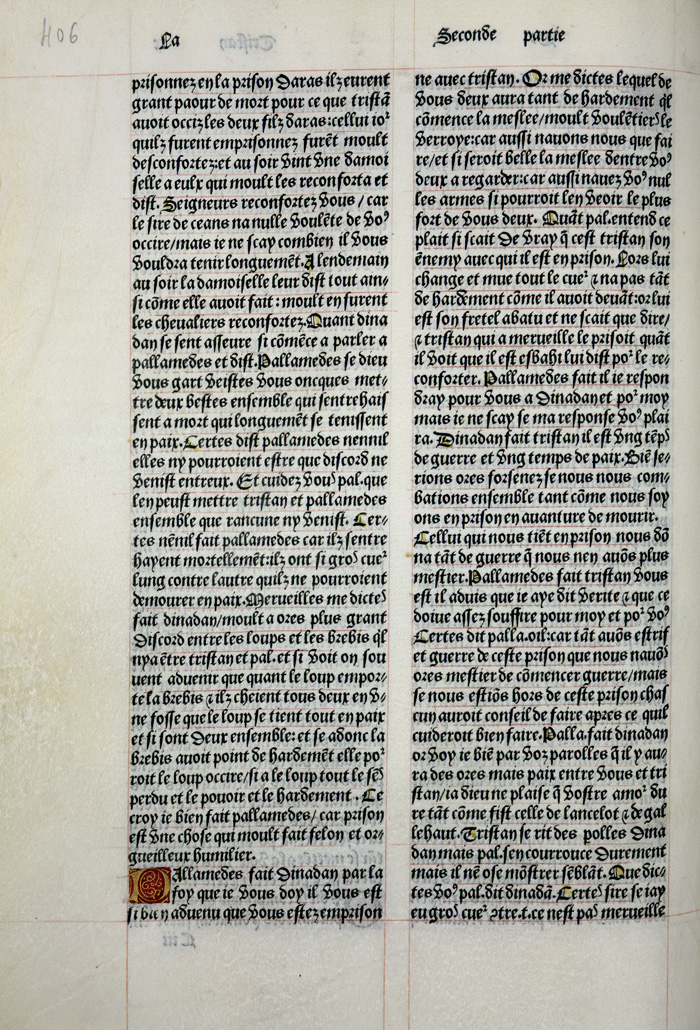 406
La
Seconde partie
prisonnez en la prison Daras ilz eurent
grant paour de mort pour ce que tristã
auoit occiz les deux filz daras:cellui io²
quilz furent emprisonnez furẽt moult
desconfortez:et au soir vint vne damoi
selle a eulx qui moult les reconforta et
dist. Seigneurs reconfortez vous / car
le sire de ceans na nulle voulẽte de voꝰ
occire/mais ie ne scay combien il vous
vouldra tenir longuemẽt.A lendemain
au soir la damoiselle leur dist tout ain⸗
si cõme elle auoit fait : moult en furent
les cheualiers reconfortez.Quant dina
dan se sent asseure si cõmẽce a parler a
pallamedes et dist.Pallamedes se dieu
vous gart veistes vous oncques met⸗
tre deux bestes ensemble qui sentrehais
sent a mort qui longuemẽt se tenissent
en paix.Certes dist pallamedes nennil
elles ny pourroient estre que discord ne
venist entreux. Et cuidez vouꝰ pal.que
len peust mettre tristan et pallamedes
ensemble que rancune ny venist. Cer⸗
tes nẽnil fait pallamedes car ilz sentre
hayent mortellemẽt:ilz ont si groꝰ cue²
lung contre lautre quilz ne pourroient
demourer en paix.Merueilles me dicteꝰ
fait dinadan/moult a ores plus grant
Discord entre les loups et les brebis q̃l
nya ẽtre tristan et pal.et si voit on sou
uent aduenir que quant le loup empor⸗
te la brebis ⁊ ilz cheient tous deux en v⸗
ne fosse que le loup se tient tout en paix
et si sont Deux ensemble: et se adonc la
brebis auoit point de hardemẽt elle po²
roit le loup occire/si a le loup tout le sẽꝰ
perdu et le pouoir et le hardement . Ce
croy ie bien fait pallamedes/ car prison
est vne chose qui moult fait felon et or⸗
gueilleux humilier.
Pallamedes fait Dinadan par la
foy que ie vous doy il vous est
si biẽ aduenu que vous estez emprison
ne auec tristan. Or me dictes lequel de
vous deux aura tant de hardement q̃l
cõmence la meslee/moult voulẽtierꝰ le
verroye:car aussi nauons nous que fai
re/et si seroit belle la meslee dentre voꝰ
deux a regarder:car aussi nauez voꝰ nul
les armes si pourroit len veoir le plus
fort de vous deux. Quãt pal.entend ce
plait si scait De vray q̃ cest tristan son
ẽnemy auec qui il est en prison. Lors lui
change et mue tout le cue² ⁊ na pas tãt
de hardement cõme il auoit deuãt:or lui
est son fretel abatu et ne scait que dire/
⁊ tristan qui a merueille le prisoit quãt
il voit que il est esbahi lui dist po² le re⸗
conforter. Pallamedes fait il ie respon
dray pour vous a Dinadan et po² moy
mais ie ne scay se ma response voꝰ plai
ra.Dinadan fait tristan il est vng tẽpꝰ
de guerre et vng temps de paix.Biẽ se⸗
rions ores forsenez se nous nous com⸗
bations ensemble tant cõme nous soy
ons en prison en auanture de mourir.
Cellui qui nous tiẽt en prison nous dõ
na tãt de guerre q̃ nous nen auõs plus
mestier.Pallamedes fait tristan vous
est il aduis que ie aye dit verite ⁊ que ce
doiue assez souffire pour moy et po² voꝰ
Certes dit palla.oil:car tãt auõs estrif
et guerre de ceste prison que nous nauõꝰ
ores mestier de cõmencer guerre/mais
se nous estiõs hors de ceste prison chas
cun auroit conseil de faire apres ce quil
cuideroit bien faire.Palla.fait dinadan
or voy ie biẽ par voz parolles q̃ il y au⸗
ra des ores mais paix entre vous et tri
stan/ia dieu ne plaise q̃ vostre amo² du
re tãt cõme fist celle de lancelot ⁊ de gal
lehaut.Tristan se rit des polles Dina
dan mais pal.sen courrouce Durement
mais il nẽ ose mõstrer sẽblãt. Que dic⸗
tes voꝰ pal.dit dinadã.Certeꝰ sire se iay
eu groꝰ cue² ꝯtre.t.ce nest paꝰ merueille